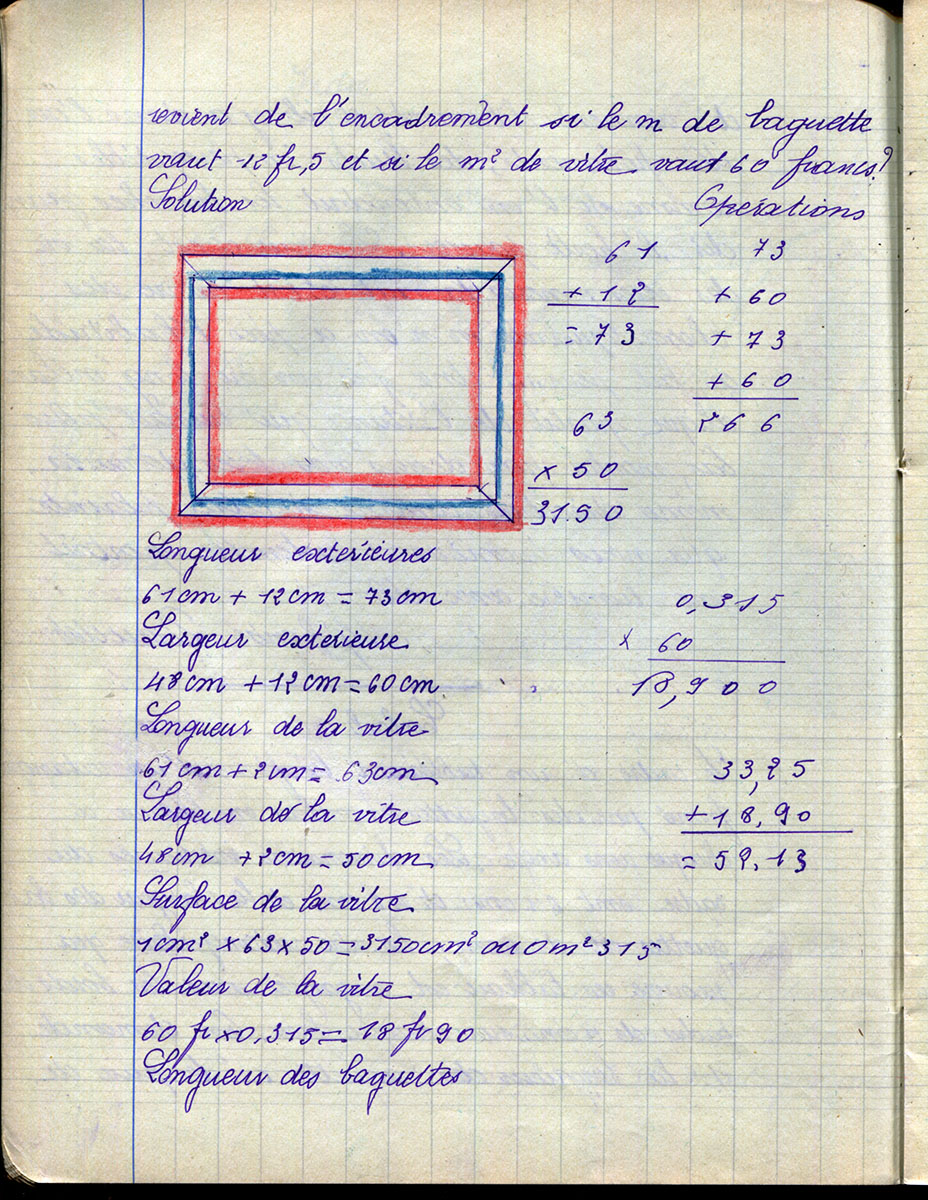 revient de l'encadrement si le m de baguette
vaut 12 fr,5 et si le m² de vitre vaut 60 francs?
Solution
Opérations
61
+ 12
= 73
73
+ 60
+ 73
+ 60
266
63
x 50
31.50
Longueur extérieures
61cm + 12cm = 73cm
Largeur extérieure
48cm + 12cm = 60cm
Longueur de la vitre
61cm + 2cm = 63cm
Largeur de la vitre
48cm + 2cm = 50cm
Surface de la vitre
1cm² x 63 x 50 = 3150cm² ou 0m² 315
Valeur de la vitre
60 fr x 0,315 = 18 fr 90
Longueur des baguettes
0,315
x 60
18,900
33,25
+ 18,90
= 52,13